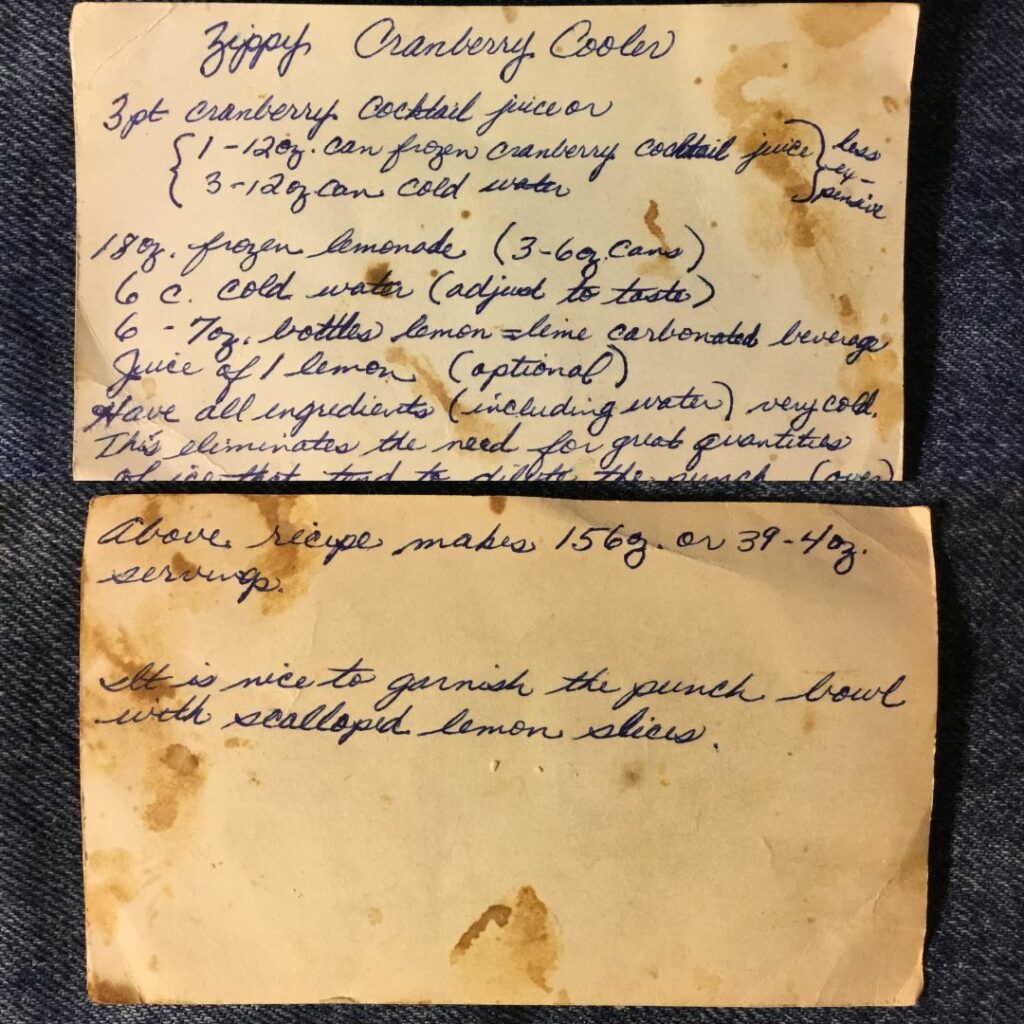 Zippy Cranberry Cooler
3 pt cranberry cocktail juice or
{ 1 - 12oz. can frozen cranberry cocktail juice } less ex-pensive
3 - 12oz can cold water
18oz. frozen lemonade (3-6oz. cans)
6 c. cold water (adjust to taste)
6 - 7oz. bottles lemon=lime carbonated beverage
Juice of 1 lemon (optional)
Have all ingredients (including water) very cold.
This eliminates the need for great quantities
of ice that tend to dilute the punch (over)
Above recipe makes 156oz. or 39-4oz.
servings.
It is nice to garnish the punch bowl
with scalloped lemon slices.